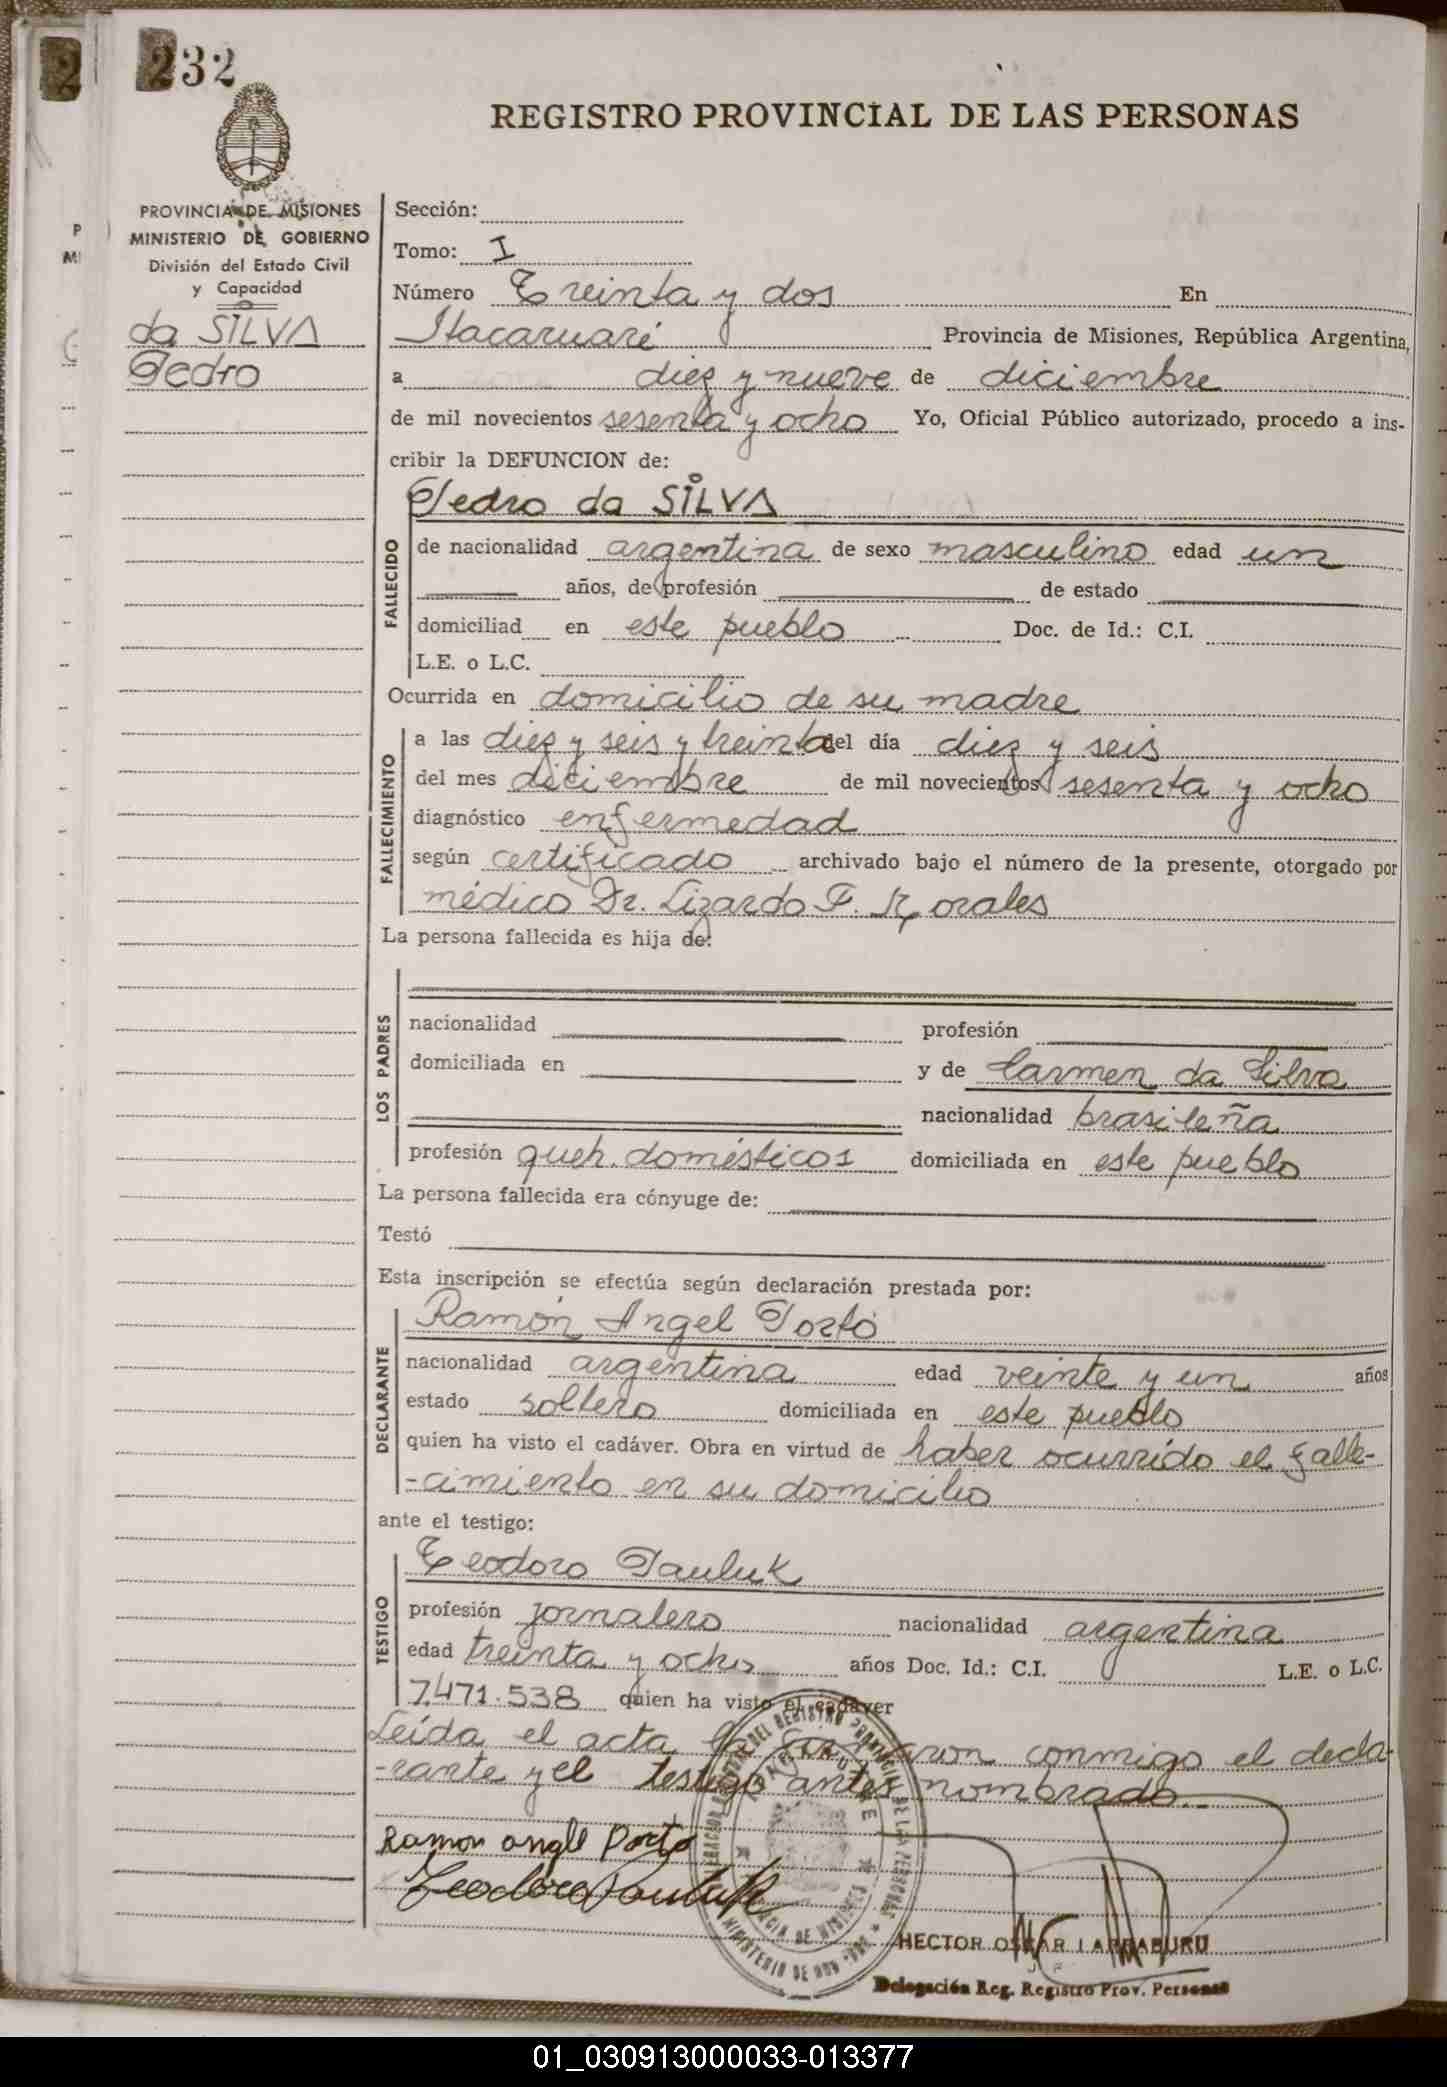 232
REGISTRO PROVINCIAL DE LAS PERSONAS
PROVINCIA DE MISIONES
MINISTERIO DE GOBIERNO
División del Estado Civil
y Capacidad
da SILVA
Pedro
Sección:
Tomo: I
Número Treinta y dos En
Itacaruaré Provincia de Misiones, República Argentina,
a diez y nueve de diciembre
de mil novecientos sesenta y ocho Yo, Oficial Público autorizado, procedo a ins-
cribir la DEFUNCION de:
Pedro da SILVA
FALLECIDO
de nacionalidad argentina de sexo masculino edad un
años, de profesión de estado
domiciliad en este pueblo Doc. de Id.: C.I.
L.E. o L.C.
Ocurrida en domicilio de su madre
FALLECIMIENTO
a las diez y seis y treinta del día diez y seis
del mes diciembre de mil novecientos sesenta y ocho
diagnóstico enfermedad
según certificado archivado bajo el número de la presente, otorgado por
médico Dr. Lizardo F. Morales
La persona fallecida es hija de:
LOS PADRES
nacionalidad profesión
domiciliada en y de Carmen da Silva
nacionalidad brasileña
profesión queh. domésticos domiciliada en este pueblo
La persona fallecida era cónyuge de:
Testó
Esta inscripción se efectúa según declaración prestada por:
DECLARANTE
Ramón Angel Porto
nacionalidad argentina edad veinte y un años
estado soltero domiciliada en este pueblo
quien ha visto el cadáver. Obra en virtud de haber ocurrido el falle-
-cimiento en su domicilio
ante el testigo:
TESTIGO
Teodoro Pauluk
profesión jornalero nacionalidad argentina
edad treinta y ocho años Doc. Id.: C.I. L.E. o L.C.
7.471.538 quien ha visto el cadáver
Leída el acta la firmaron conmigo el decla-
-rante y el testigo antes nombrado.
Ramon angle Porto
Teodoro Pauluk
HECTOR OSCAR LARRABURU
Delegación Reg. Registro Prov. Personas
01_030913000033-013377